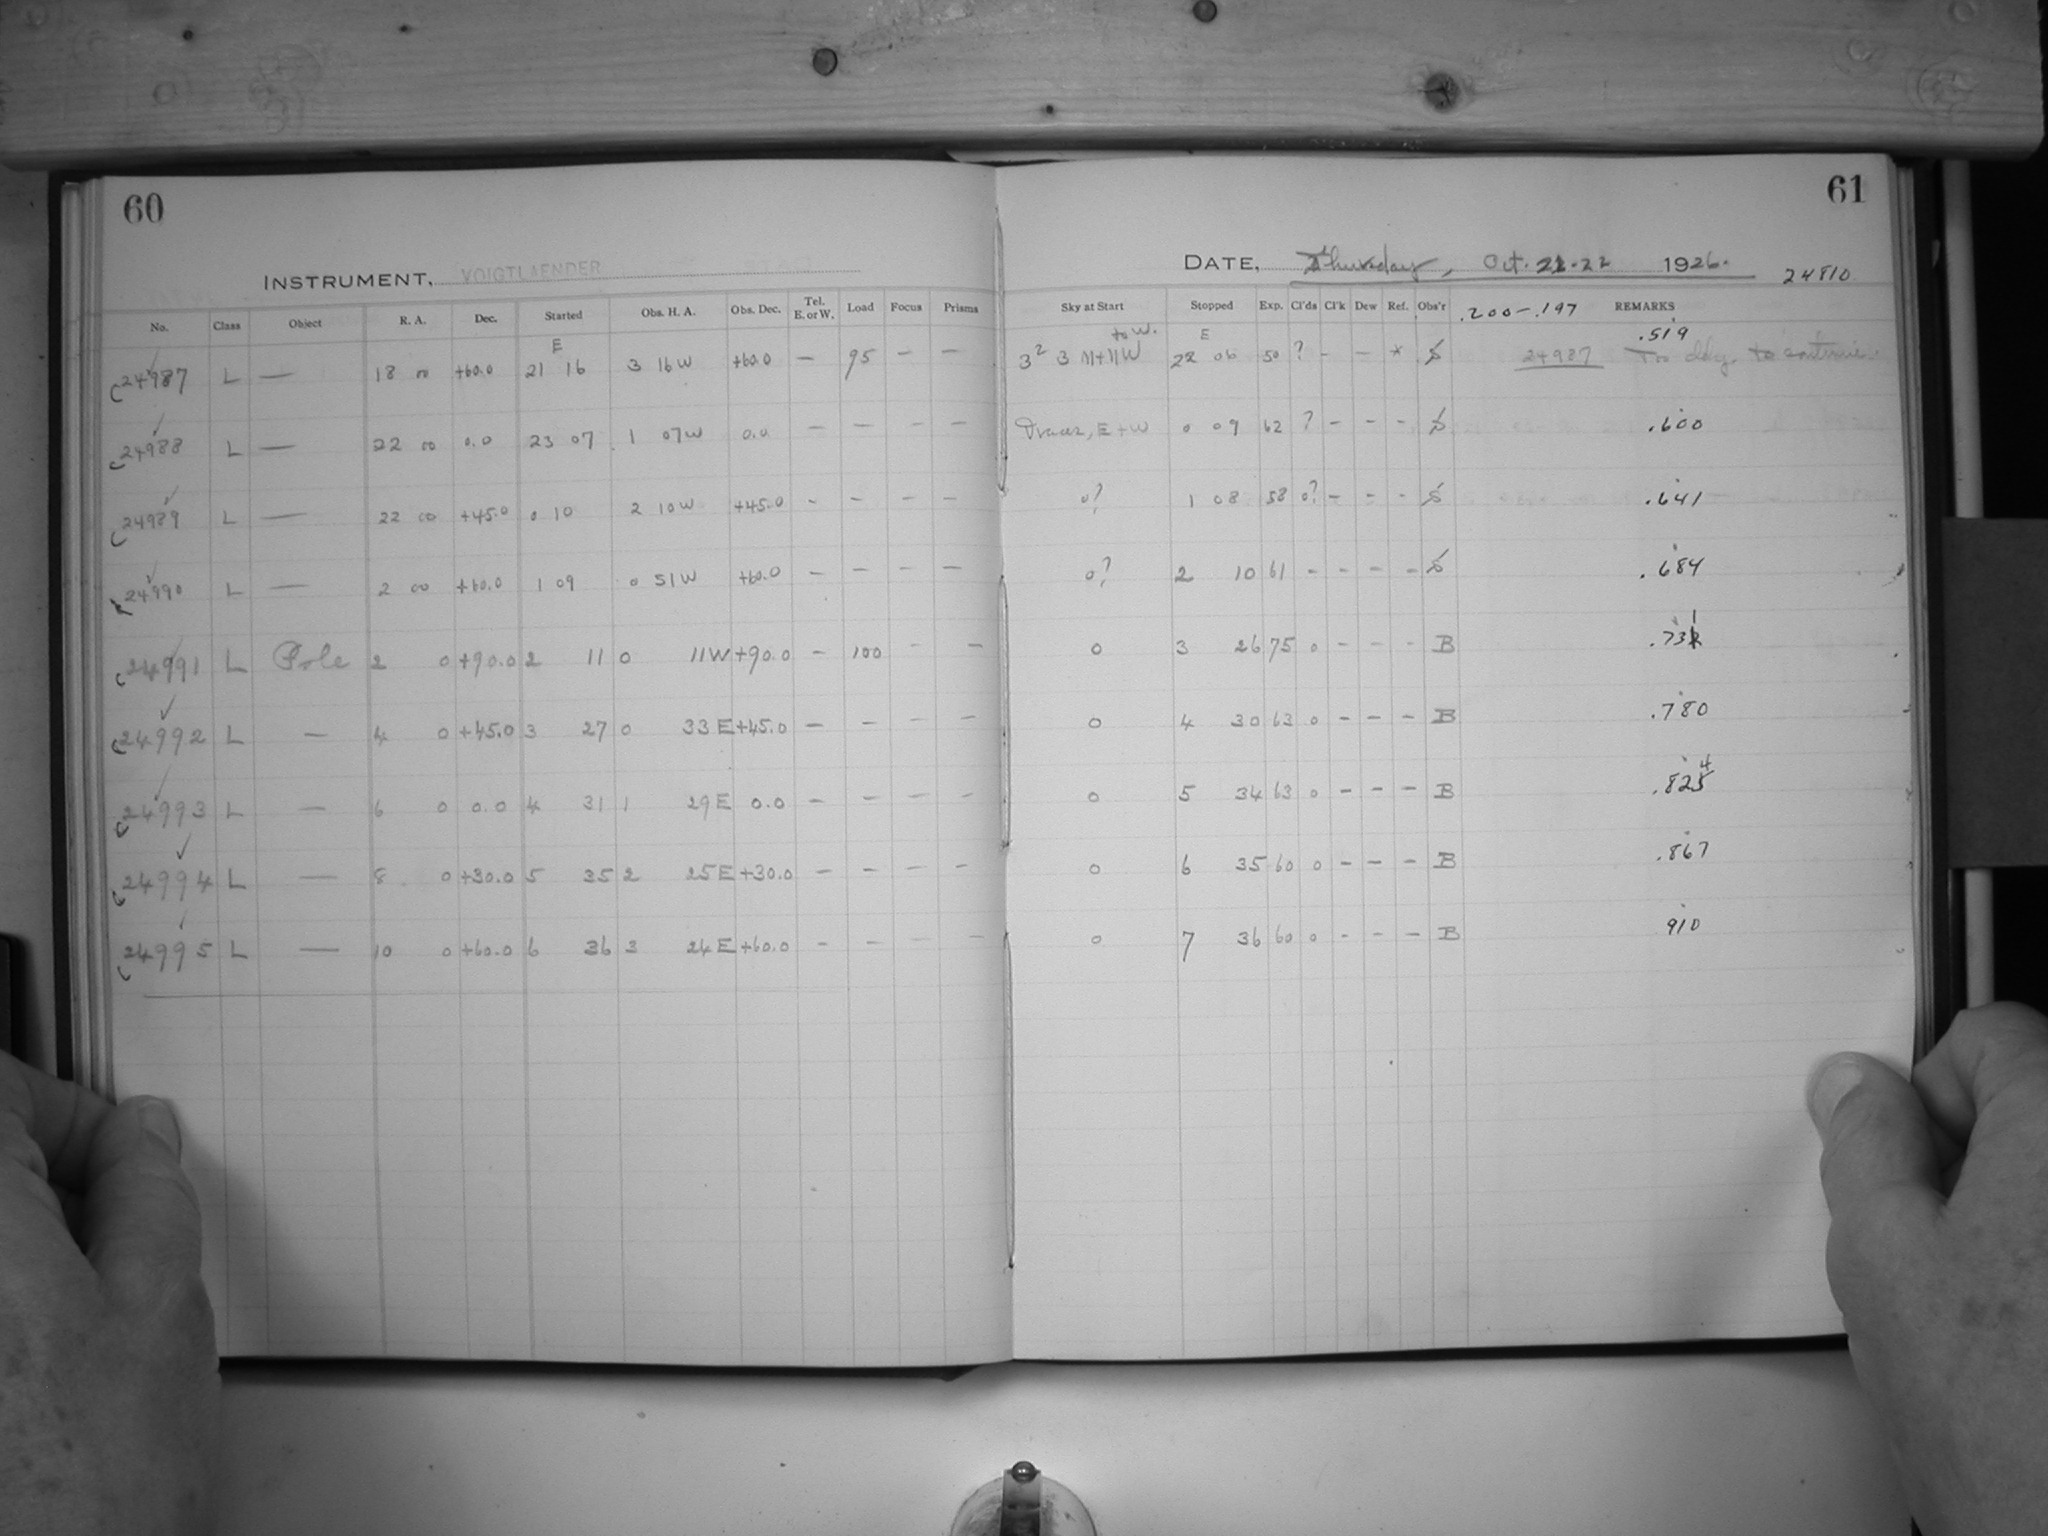 60
INSTRUMENT, VOIGTLAENDER
No. Class Object R. A. Dec. Started Obs. H. A. Obs. Dec. Tel. E. or W. Load Focus Prisms
E
24987 L — 18 00 +60.0 21 16 3 16 W +60.0 — 95 — —
24988 L — 22 00 0.0 23 07 1 07 W 0.0 — — — —
24989 L — 22 00 +45.0 0 10 2 10 W +45.0 — — — —
24990 L — 2 00 +60.0 1 09 0 51 W +60.0 — — — —
24991 L Pole 2 0 +90.0 2 11 0 11 W +90.0 — 100 - —
24992 L — 4 0 +45.0 3 27 0 33 E +45.0 — — — —
24993 L — 6 0 0.0 4 31 1 29 E 0.0 — — — —
24994 L — 8 0 +30.0 5 35 2 25 E +30.0 — — — —
24995 L — 10 0 +60.0 6 36 3 24 E +60.0 — — — —
61
DATE, Thursday, Oct. 21-22 1926. 24810
Sky at Start Stopped Exp. Cl'ds Cl'k Dew Ref. Obs'r .200-.197 REMARKS
to W. E .519
3² 3 N+NW 22 06 50 ? - — * S 24987 Too to continue.
E+W 0 09 62 ? - - - S .600
0? 1 08 58 0? — - - S .641
0? 2 10 61 - - - - S .684
0 3 26 75 0 - - - B .731
0 4 30 63 0 - - - B .780
0 5 34 63 0 - - - B .824
0 6 35 60 0 - — - B .867
0 7 36 60 0 - - — B 910